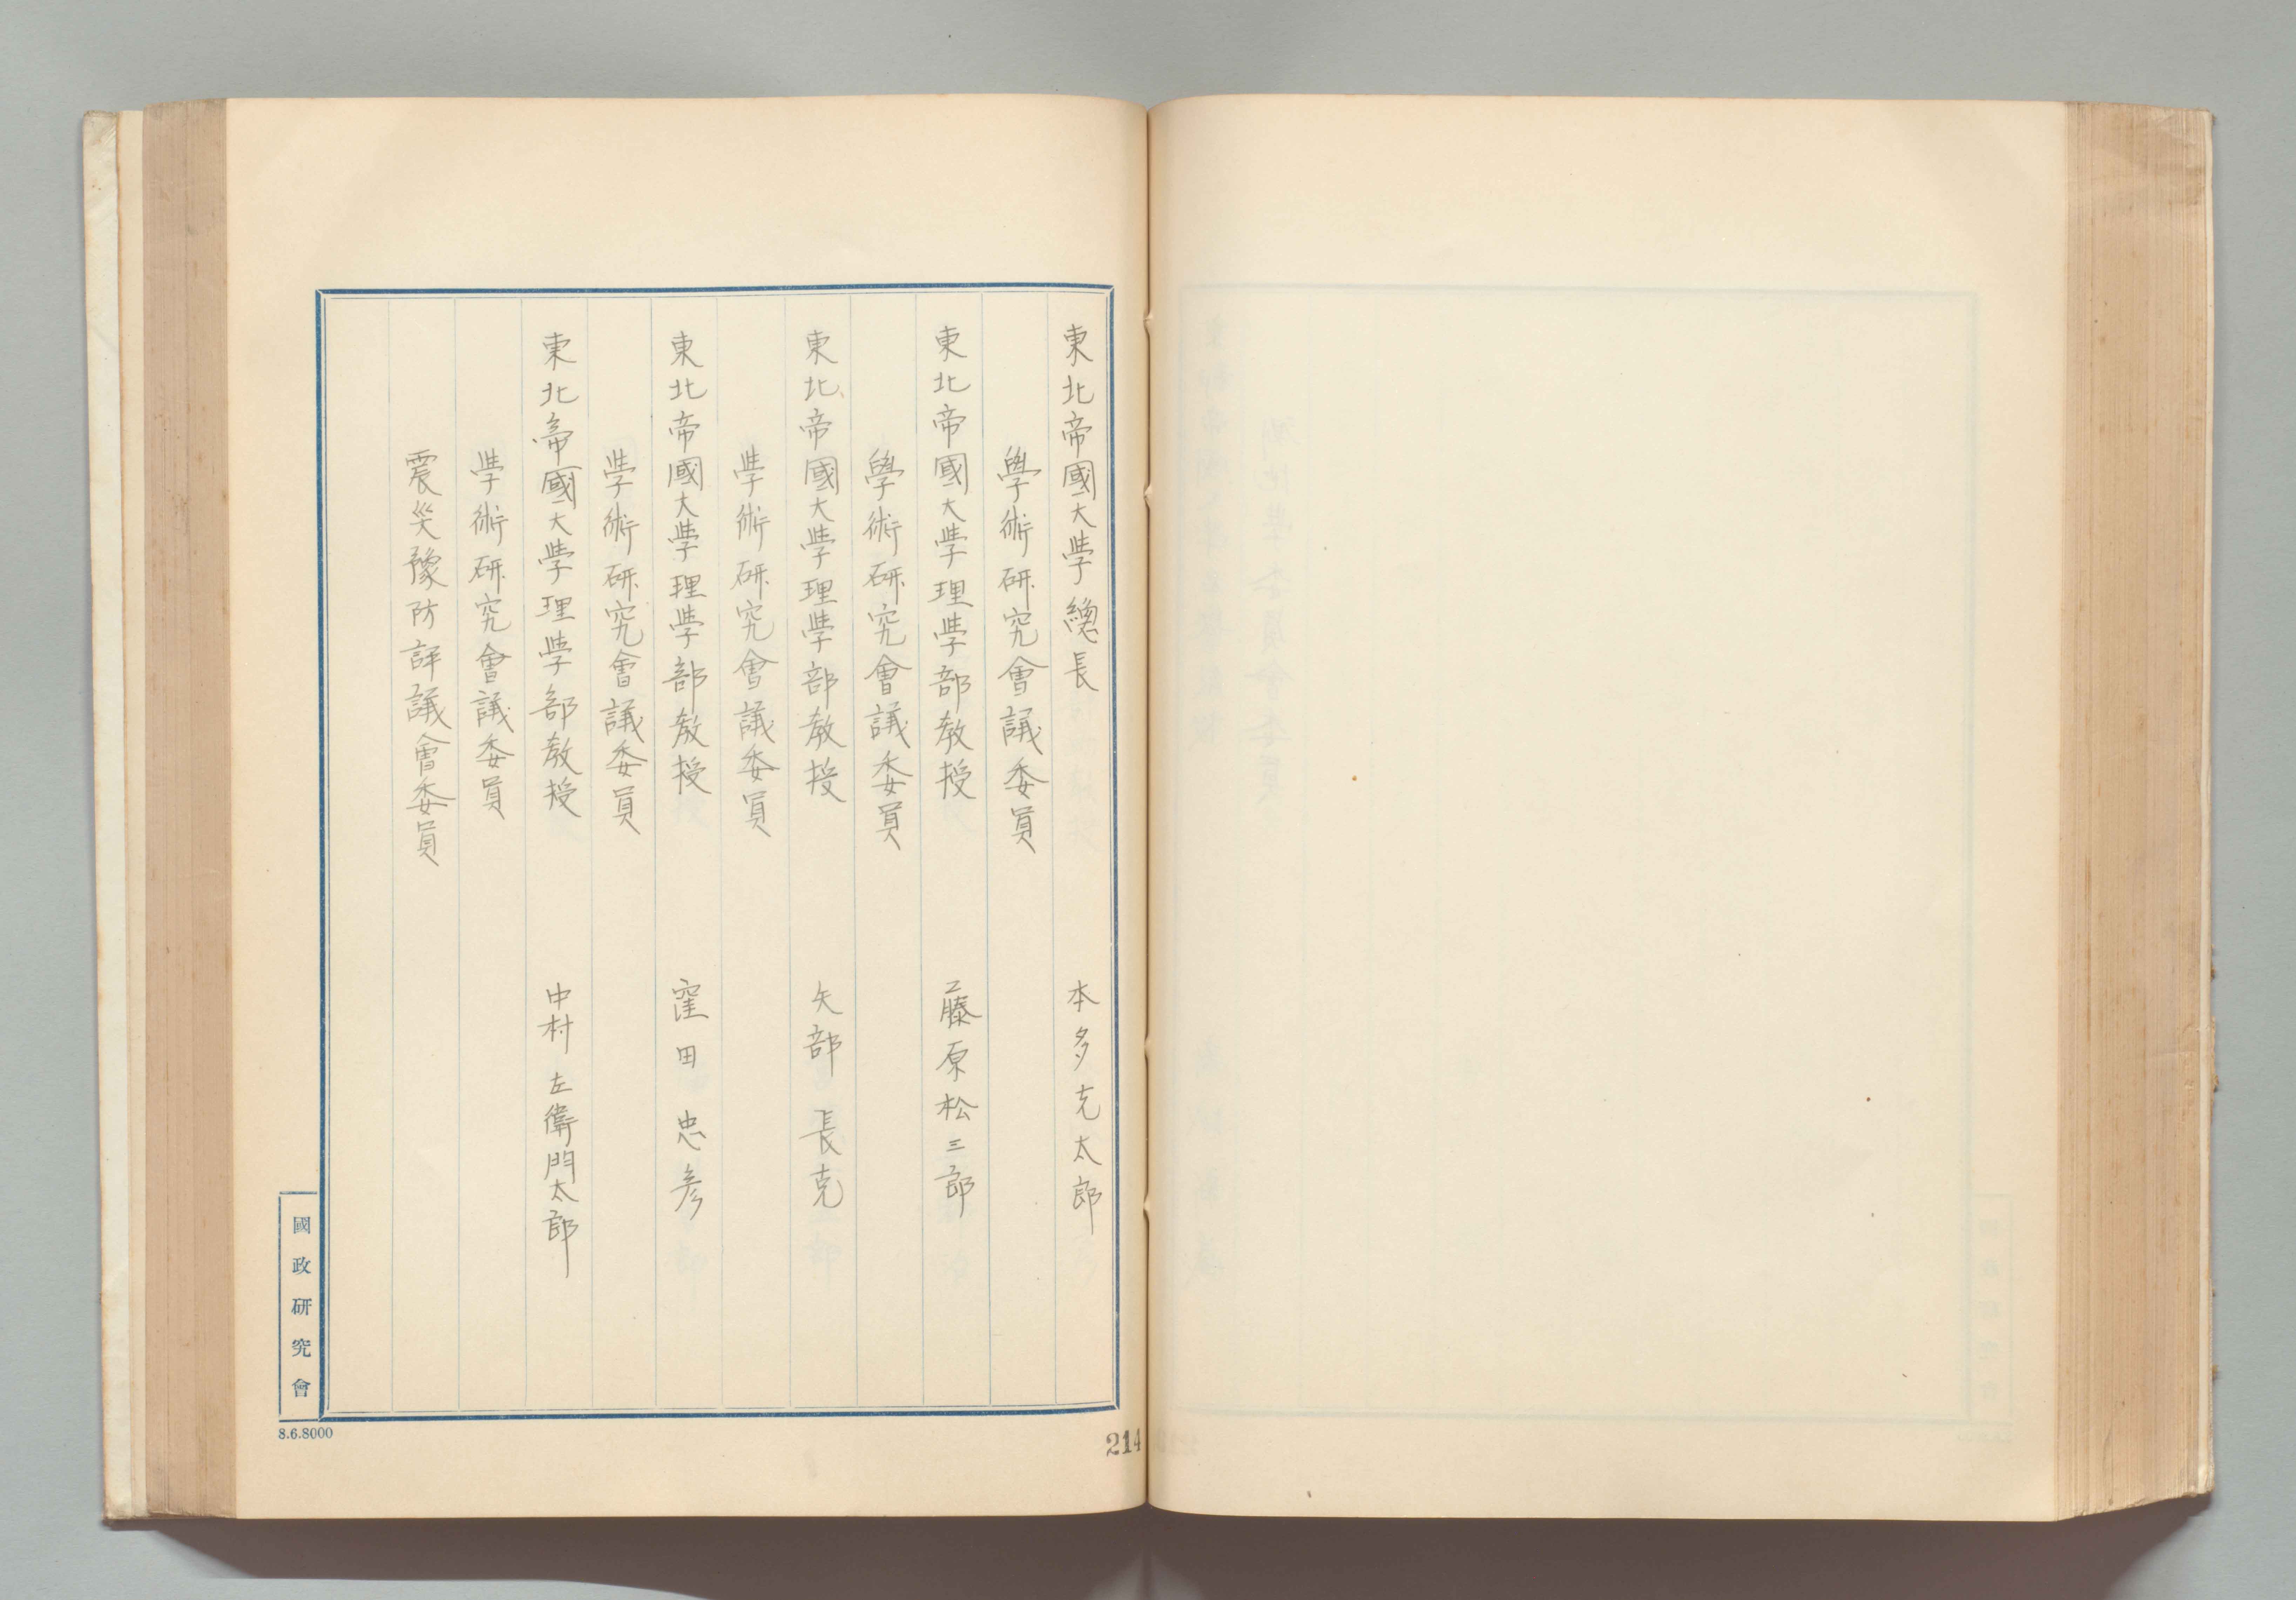 東北帝國大学總長 本多光太郎
學術研究會議委員
東北帝國大学理学部教授 藤原松三郎
學術研究會議委員
東北帝國大学理学部教授 矢部長克
学術研究會議委員
東北帝國大学理学部教授 窪田忠彦
学術研究會議委員
東北帝國大学理学部教授 中村左衛門太郎
学術研究會議委員
震災豫防評議會委員
國政研究會
8.6.8000
214